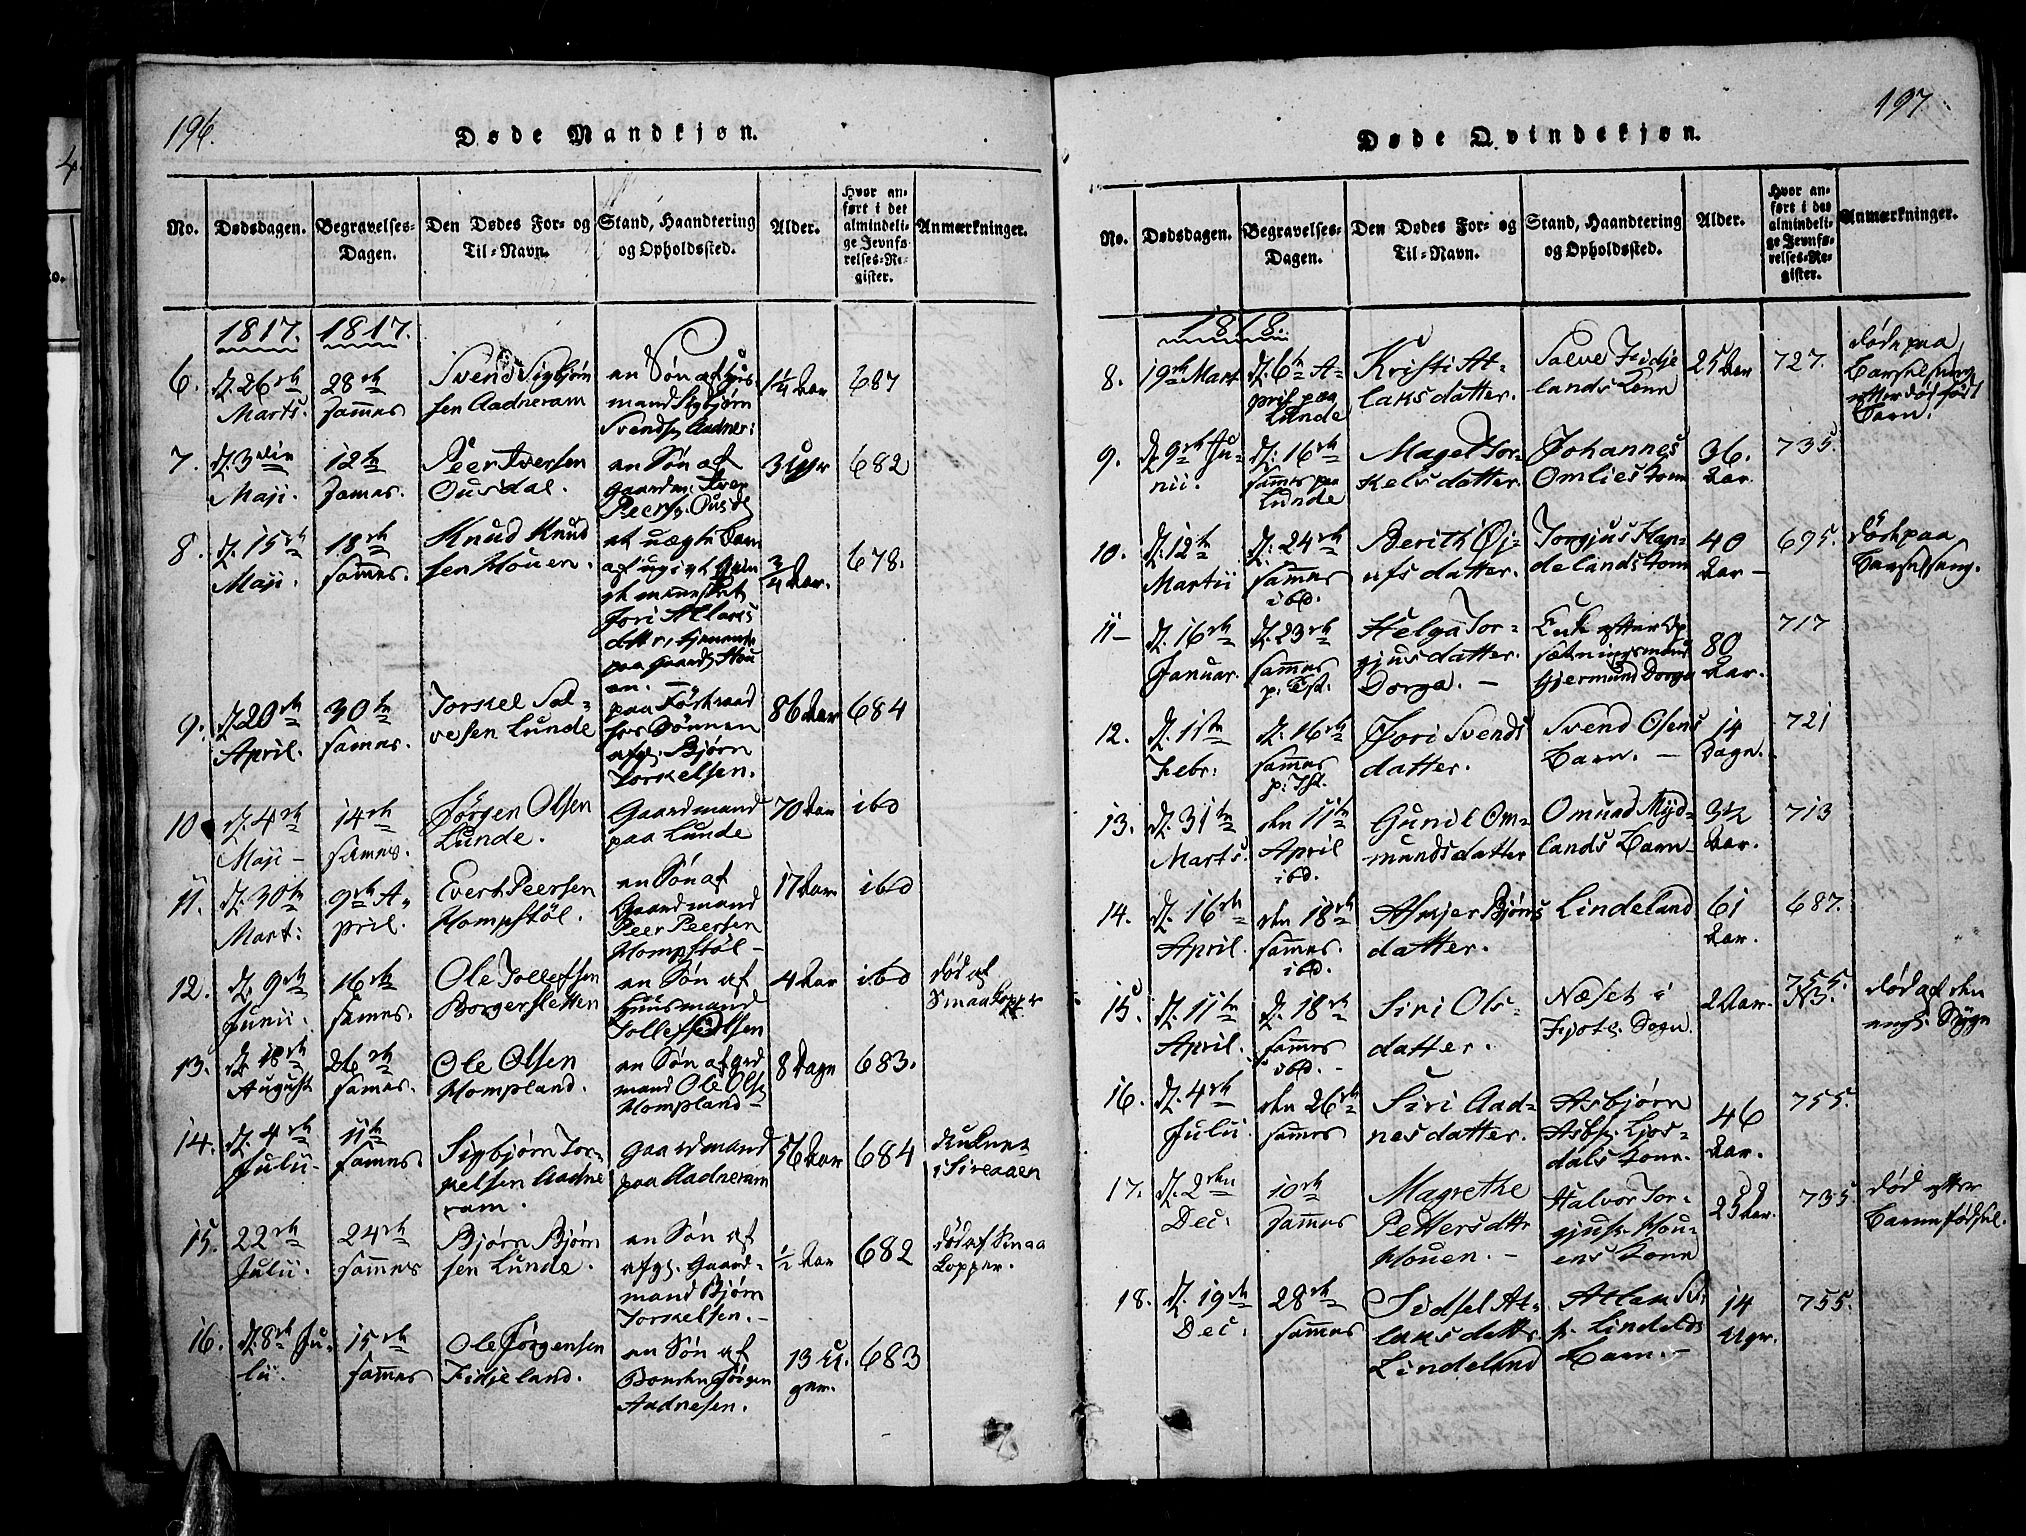 196.
Døde Mandkjøn.
No.
Dødsdagen.
Begravelses-
Dagen.
Den Dødes For- og
Til-Navn.
Stand, Haandtering
og Opholdssted.
Alder.
Hvor an-
ført i det
almindeli-
ge Jevnfø-
relses-Re-
gister.
Anmærkninger.
1817. 1817.
6.
d. 26de
Marts.
28de
sammes
Svend Sigbjørn
sen Aadneram
en Søn af Hus-
mand Sigbjørn
Svends. Aadner:
1¼ Aar
687
7.
d. 3die
Maji.
12te
sammes.
Peer Iversen
Ousdal.
en Søn af
Gaardm: Iver
Peers. Ousd.
3 Uger
682
8.
d. 15de
Maji.
18de
sammes.
Knud Knud
sen Houen.
et uægte Barn
af ugivt Qvin
de mennesket
Jori Atlaks
datter, tjenende
paa Gaard. Hou
en. —
¾ Aar.
678.
9.
d. 20de
April.
30te
sammes.
Torkel Sal-
vesen Lunde
paa Føderaad
hos Sønnen
afg. Bjørn
Torkelsen.
86 Aar
684
10
d. 4de
Maji –
14de
sammes.
Jørgen Olsen
Lunde.
Gaardmand
paa Lunde
70 Aar
ibd
11.
d. 30te
Mart:
9de A-
pril.
Evert Peersen
Hompstøl.
en Søn af
Gaardmand
Peer Peersen
Hompstøl –
17 Aar
ibd
12.
d. 9de
Junii.
16de
sammes.
Ole Tollefsen
Borgersletten
en Søn af
Huusmand
Tollef Olsen
4 Aar
ibd
død af
Smaakopper
13.
d. 18de
August
26de
sammes.
Ole Olsen
Hompland.
en Søn af grd
mand Ole Ols.
Hompland –
8 Dage
683.
14.
d. 4de
Julii –
11te
sammes
Sigbjørn Tor-
kelsen Aadne
ram.
Gaardmand
paa Aadneram
56 Aar
684
druknet
i Sireaaen
15.
22de
Julii.
24de
sammes
Bjørn Bjørn
sen Lunde.
en Søn af
afg. Gaard-
mand Bjørn
Torkelsen. –
½ Aar
682
død af Smaa
kopper.
16.
d. 8de Ju-
lii.
15de
sammes
Ole Jørgensen
Fidjeland.
en Søn af
Bonden Jørgen
Aadnesen.
13 U-
ger.
683
197.
Døde Qvindekjøn.
No.
Dødsdagen.
Begravelses-
Dagen.
Den Dødes For- og
Til-Navn.
Stand, Haandtering
og Opholdssted.
Alder.
Hvor an-
ført i det
almindeli-
ge Jevnfø-
relses-Re-
gister.
Anmærkninger.
1818.
8.
19de Mart
d. 6te A-
pril paa
Lunde
Kristi At-
laksdatter.
Salve Fidje
lands Kone
25 Aar
727.
døde paa
Barselseng
efter dødfødt
Barn.
9.
d. 9de Ju-
nii.
d. 16de
sammes paa
Lunde
Magel Tor-
kelsdatter.
Johannes
Omlies Kone
36.
Aar.
735.
10.
d. 12te
Martii
d. 24de
sammes
ibd.
Berith Øj-
ufsdatter.
Torgjus Han-
delands Kone
40
Aar –
695.
døde paa
Barselseng.
11 –
d. 16de
Januar.
d. 23de
sammes
Helga Tor-
gjusdatter.
Dorga. –
Enke efter Op
sætningsmand
Gjermund Dorga
80
Aar.
717
12.
d. 1ste
Febr:
d. 16de
sammes
Jori Svends
datter.
Svend Olsens
Barn. –
14
Dage.
721
13.
d. 31te
Marts.
den 11te
April
ibd.
Gunil Om-
mundsdatter
Omund Myd-
lands Barn –
3½
Aar.
713
14.
d. 16de
April.
den 18de
sammes.
ibd.
Asgjer Bjørns
datter.
Lindeland
61
Aar.
687.
15.
d. 11te
April.
d. 18de
sammes
ibd.
Siri Ols-
datter.
Næset i
Fjote. Sogn.
2 Aar.
755.
død af den
eng. Syge
16.
d. 4de
Julii
den 26de
sammes
Siri Aad-
nesdatter.
Asbjørn
Asbj. Ljos-
dals Kone.
46
Aar.
755.
17.
d. 2den
Dec:
10de
sammes
Magrethe
Pettersdtr
Houen. –
Halvor Tor-
gjus. Hou-
ens Kone
25 Aar.
735
død efter
Barnefødsel.
18.
d. 19de
Dec:
28de
sammes
Sidsel At-
laksdattr.
Lindeland
Atlak
Lindelds
Barn. –
14
Uger.
755.